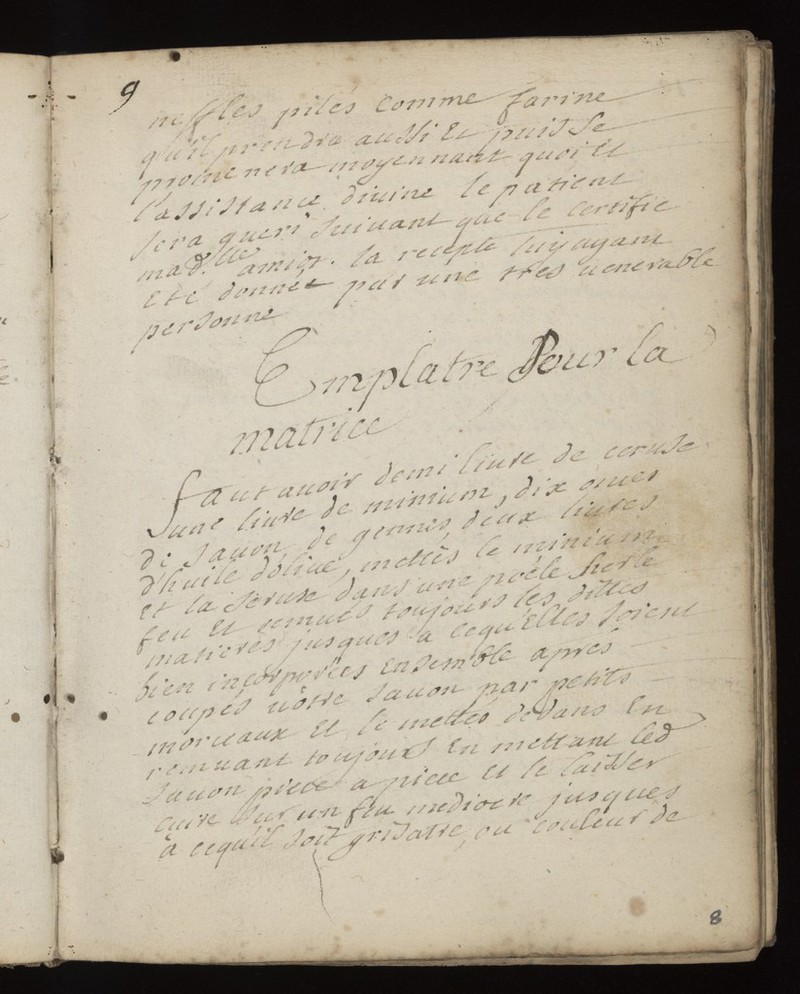 9
neffles pilés Comme farine
qu'il prendra aussi Et puis Se
promenera moyennant quoi Et
l'assistance divine le patient
sera gueri suivant que le certifie
mad.lle amior. la recepte luy ayant
Eté donnée par une tres venerable
personne
Emplatre Pour la
matrice
faut avoir demi livre de ceruse
une livre de minium, dix onces
de savon de gennes, deux livres
d'huile dólive, mettès le minium
et la Seruse dans une poële sur le
feu et remués toujours les dittes
matieres jusques a cequ'Elles soient
bien incorporées Ensemble aprés
coupés vôtre savon par petits
morceaux et le mettés dedans En
remuant toujours En mettant led
savon piece a piece et le laisser
cuire sur un feu mediocre jusques
à cequ'il soit grisatre, ou couleur de
8